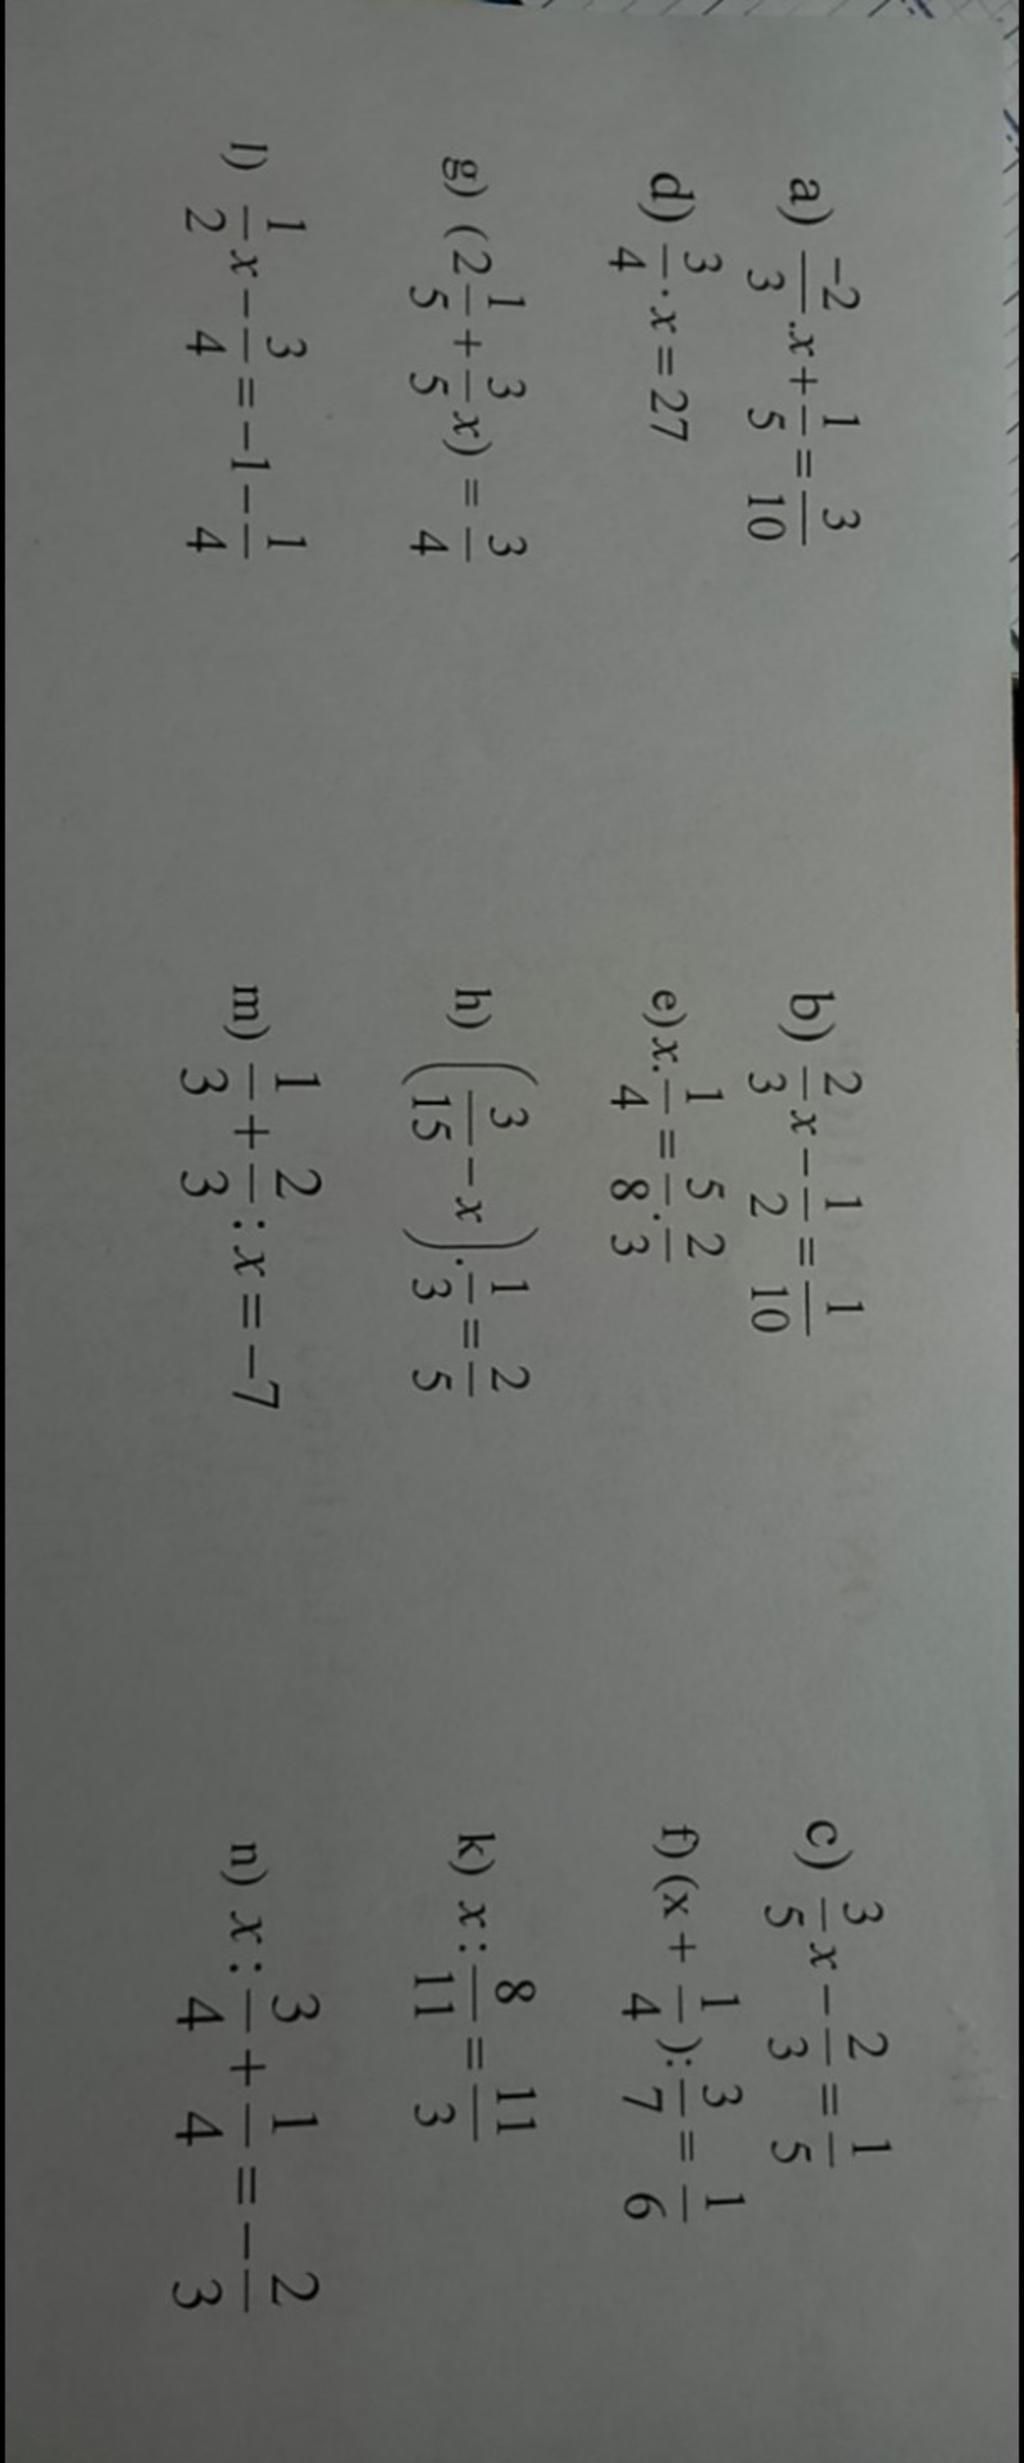 a) \frac{-2}{3}.x+\frac{1}{5}=\frac{3}{10} b) \frac{2}{3}x-\frac{1}{2}=\frac{1}{10} c) \frac{3}{5}x-\frac{2}{3}=\frac{1}{5}
d) \frac{3}{4}·x=27 e) x.\frac{1}{4}=\frac{5}{8}.\frac{2}{3} f) (x+\frac{1}{4}):\frac{3}{7}=\frac{1}{6}
g) (2\frac{1}{5}+\frac{3}{5}x)=\frac{3}{4} h) (\frac{3}{15}-x).\frac{1}{3}=\frac{2}{5} k) x:\frac{8}{11}=\frac{11}{3}
l) \frac{1}{2}x-\frac{3}{4}=-1-\frac{1}{4} m) \frac{1}{3}+\frac{2}{3}:x=-7 n) x:\frac{3}{4}+\frac{1}{4}=-\frac{2}{3}